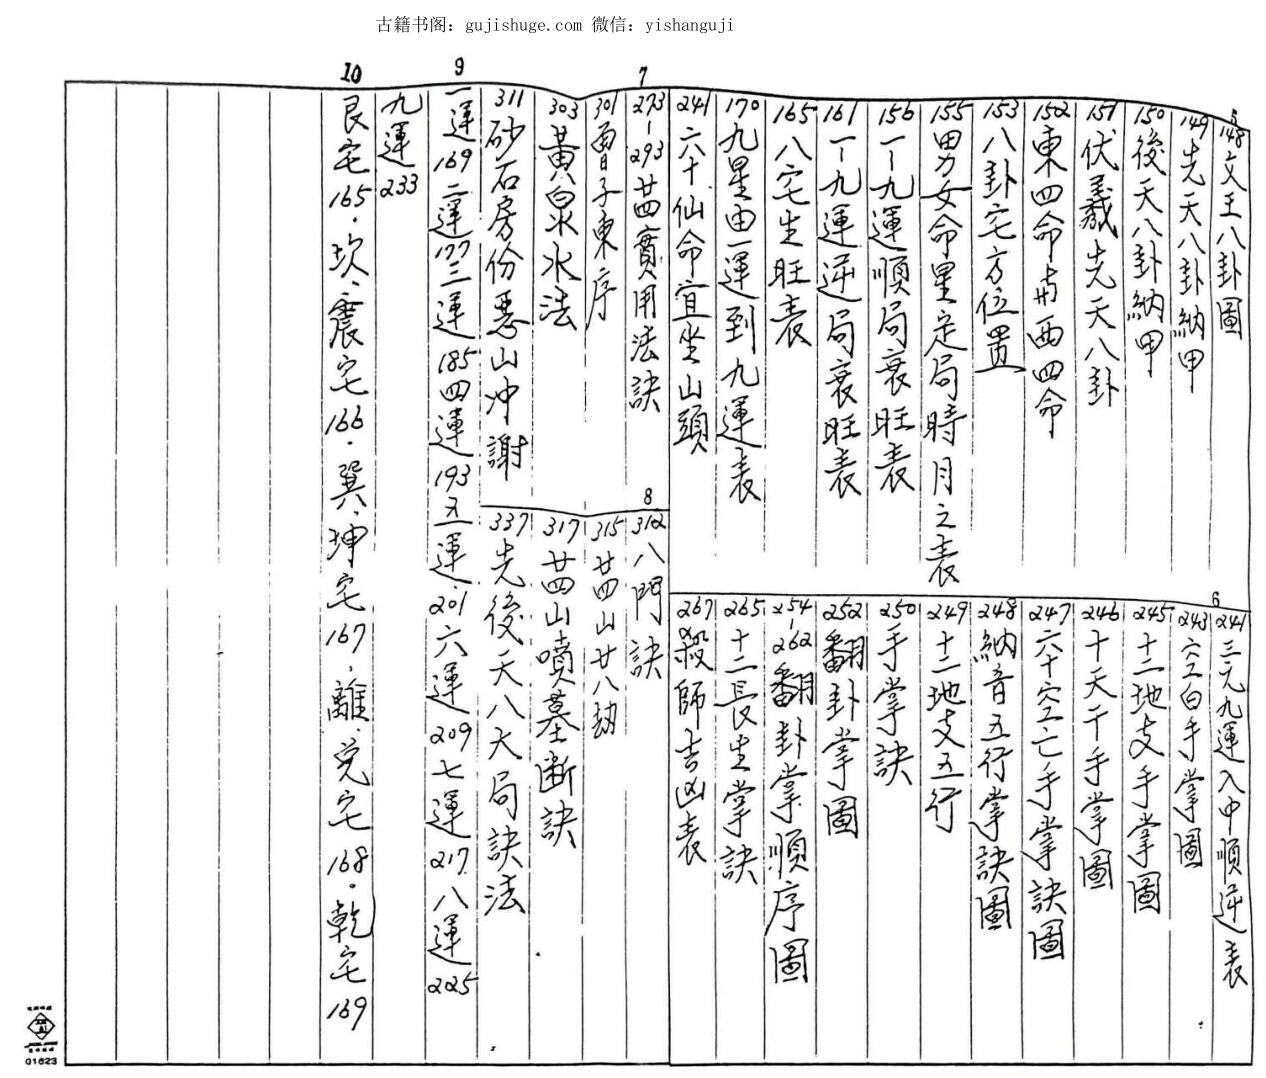 古籍书阁：gujishuge.com 微信：yishanguji
5
148 文王八卦圖
149 先天八卦納甲
150 後天八卦納甲
151 伏羲先天八卦
152 東四命與西四命
153 八卦宅方位置
155 男女命星定局時月之表
156 一—九運順局衰旺表
161 一—九運逆局衰旺表
165 八宅生旺表
170 九星由一運到九運表
241 六十仙命宜坐山頭
6
241 三元九運入中順逆表
243 六白手掌圖
245 十二地支手掌圖
246 十天干手掌圖
247 六十空亡手掌訣圖
248 納音五行掌訣圖
249 十二地支五行
250 手掌訣
252 翻卦掌圖
254-262 翻卦掌順序圖
265 十二長生掌訣
267 殺師吉凶表
7
273-293 廿四寶用法訣
301 曾子東序
303 黃泉水法
311 砂石房份惡山冲謝
8
312 八門訣
315 廿四山廿八劫
317 廿四山噴墓断訣
337 先後天八大局訣法
9
一運169二運177三運185四運193五運201六運209七運217八運225
九運233
10
艮宅165.坎、震宅166.巽、坤宅167.離、兌宅168.乾宅169
01623